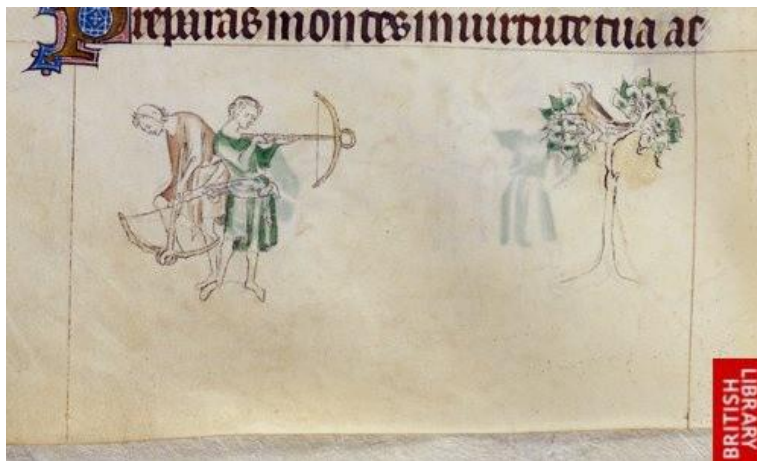 Preparas montes in uirtute tua ac
BRITISH
LIBRARY